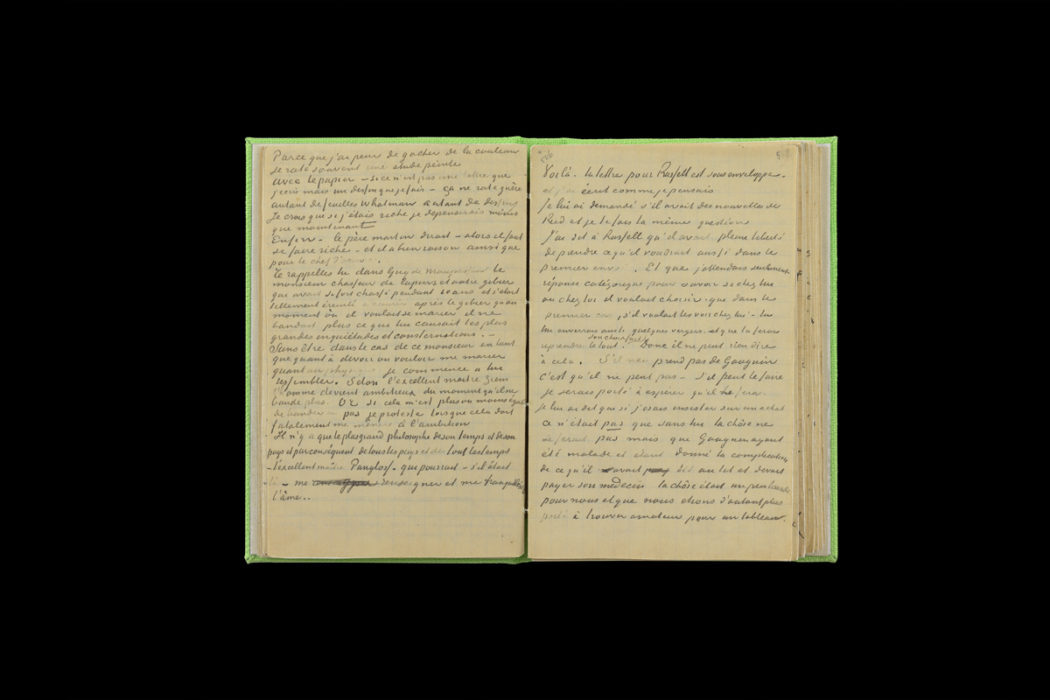 Parce que j'ai peur de gacher de la couleur
je rate souvent une etude peinte
Avec le papier – si ce n'est pas une lettre que
j'ecris mais un dessin que je fais – ça ne rate guère
autant de feuilles Whatman autant de dessins
Je crois que si j'étais riche je depenserais moins
que maintenant
Enfin – le père martin dirait – alors il faut
se faire riche – et il a bien raison ainsi que
pour le chef d'œuvre.
Te rappelles tu dans Guy de Maupassant le
monsieur chasseur de lapins et autre gibier
qui avait si fort chassé pendant 10 ans et s'était
tellement éreinté à courir après le gibier qu'au
moment où il voulait se marier il ne
bandait plus ce qui causait les plus
grandes inquiétudes et consternations. –
Sans être dans le cas de ce monsieur en tant
que quant à devoir ou vouloir me marier
quant au physique je commence a lui
ressembler. Selon l'excellent maitre Ziem
l'homme devient ambitieux du moment qu'il ne
bande plus. Or si cela m'est plus ou moins égal
de bander ou pas je proteste lorsque cela doit
fatalement me mener à l'ambition
Il n'y a que le plus grand philosophe de son temps et de son
pays et par conséquent de tous les pays et de tous les temps
– l'excellent maître Pangloss – qui pourrait – s'il était
là – me renseigner et me tranquilliser
l'âme..
Voilà – la lettre pour Russell est sous enveloppe –
et j'ai écrit comme je pensais
Je lui ai demandé s'il avait des nouvelles de
Reid et je te fais la même question
J'ai dit à Russell qu'il avait pleine liberté
de prendre ce qu'il voudrait aussi dans le
premier envoi. Et que j'attendais seulement
réponse catégorique pour savoir si chez lui
ou chez toi il voulait choisir que dans le
premier cas, s'il voulait les voir chez lui – tu
lui enverrais aussi quelques vergers et que tu ferais
son choix fait
reprendre le tout. Donc il ne peut rien dire
à cela. S'il ne prend pas de Gauguin
c'est qu'il ne peut pas – s'il peut le faire
je serais porté à espérer qu'il le fera.
je lui ai dit que si j'osais insister sur un achat
ce n'était pas que sans lui la chose ne
se ferait pas mais que Gauguin ayant
été malade et étant donné la complication
de ce qu'il avait été au lit et devait
payer son medecin la chose était un peu lourde
pour nous et que nous etions d'autant plus
porté à trouver amateur pour un tableau.